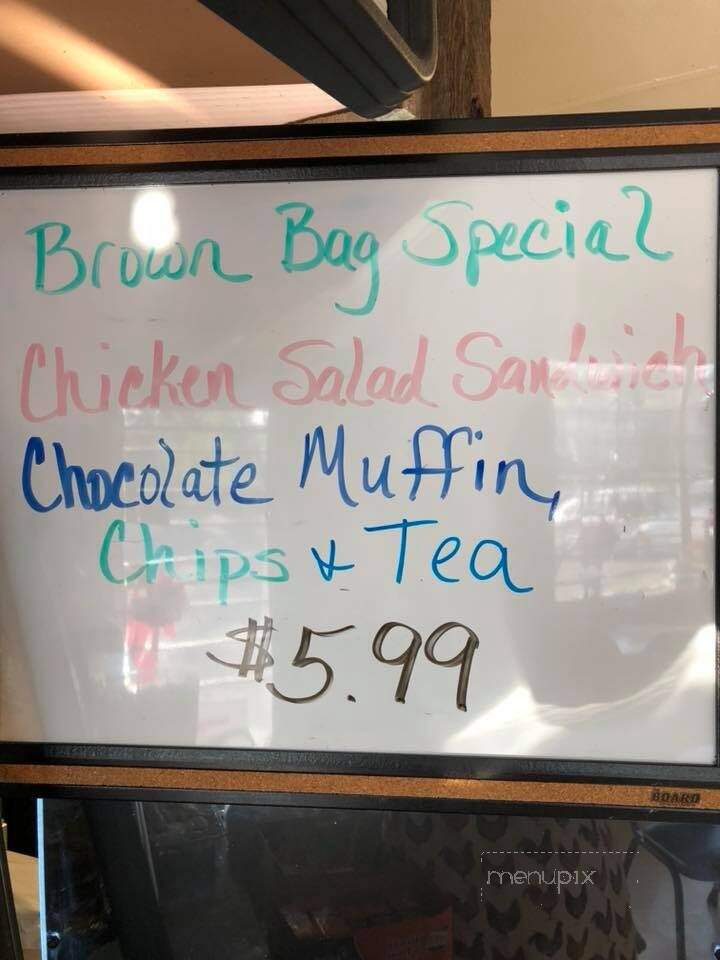 Brown Bag Special
Chicken Salad Sandwich
Chocolate Muffin,
Chips & Tea
$5.99
BOARD
menupix